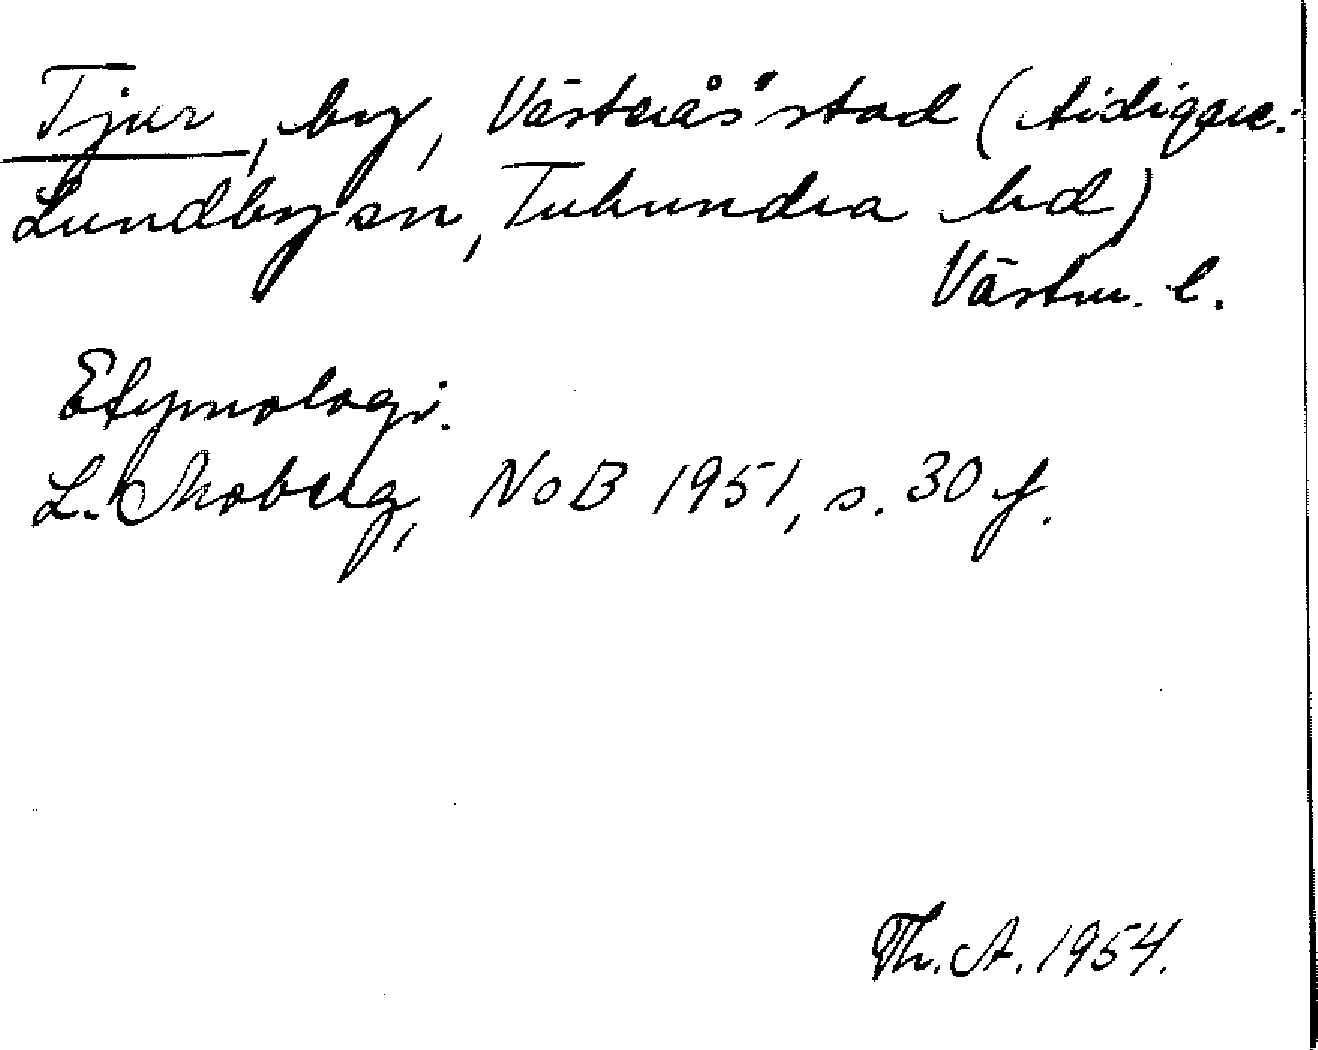 Tjur, by, Västerås stad (tidigare:
Lundby sn, Tuhundra hd)
Västm. l.
Etymologi.
L. Moberg, NoB 1951, s. 30 f.
Th. A. 1954.